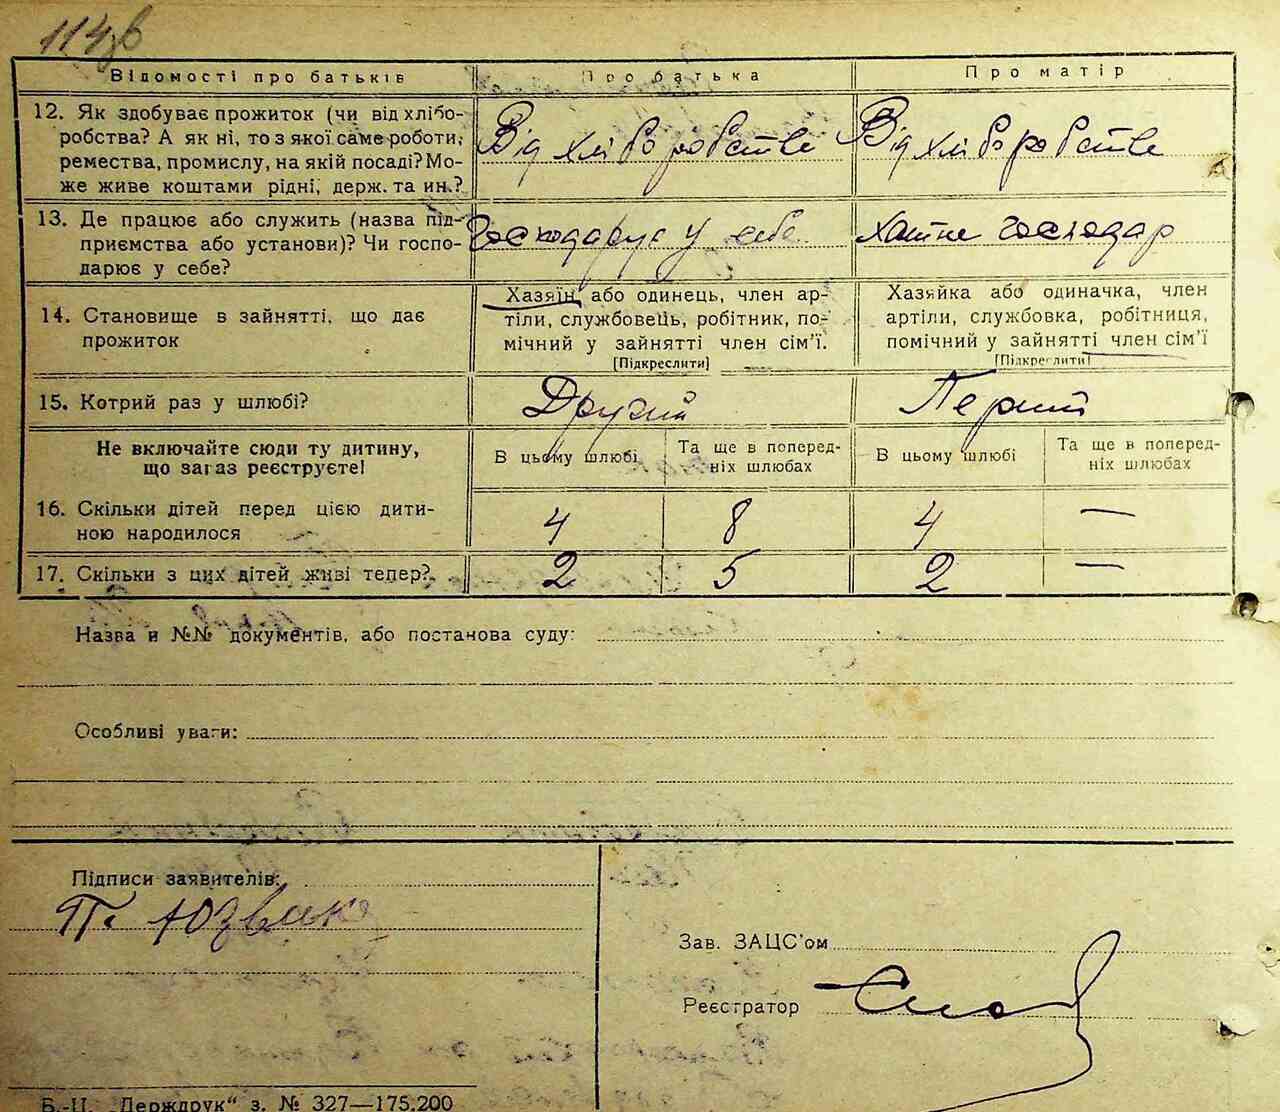 114зв
Відомості про батьків
Про батька
Про матір
12. Як здобуває прожиток (чи від хлібо-
робства? А як ні, то з якої саме роботи,
ремества, промислу, на якій посаді? Мо-
же живе коштами рідні, держ. та ин.?
Від хліборобства
Від хліборобства
13. Де працює або служить (назва під-
приємства або установи)? Чи госпо-
дарює у себе?
Господарує у себе
хатнє господар
14. Становище в зайнятті, що дає
прожиток
Хазяїн або одинець, член ар-
тіли, службовець, робітник, по-
мічний у зайнятті член сім'ї.
[Підкреслити]
Хазяйка або одиначка, член
артіли, службовка, робітниця,
помічний у зайнятті член сім'ї
[Підкреслити]
15. Котрий раз у шлюбі?
Другий
Перший
Не включайте сюди ту дитину,
що зараз реєструєте!
В цьому шлюбі
Та ще в поперед-
ніх шлюбах
В цьому шлюбі
Та ще в поперед-
ніх шлюбах
16. Скільки дітей перед цією дити-
ною народилося
4
8
4
—
17. Скільки з цих дітей живі тепер?
2
5
2
—
Назва и №№ документів, або постанова суду:
Особливі уваги:
Підписи заявителів:
П. Юзвак
Зав. ЗАЦС'ом
Реєстратор
Б.-Ц. „Держдрук“ з. № 327—175.200